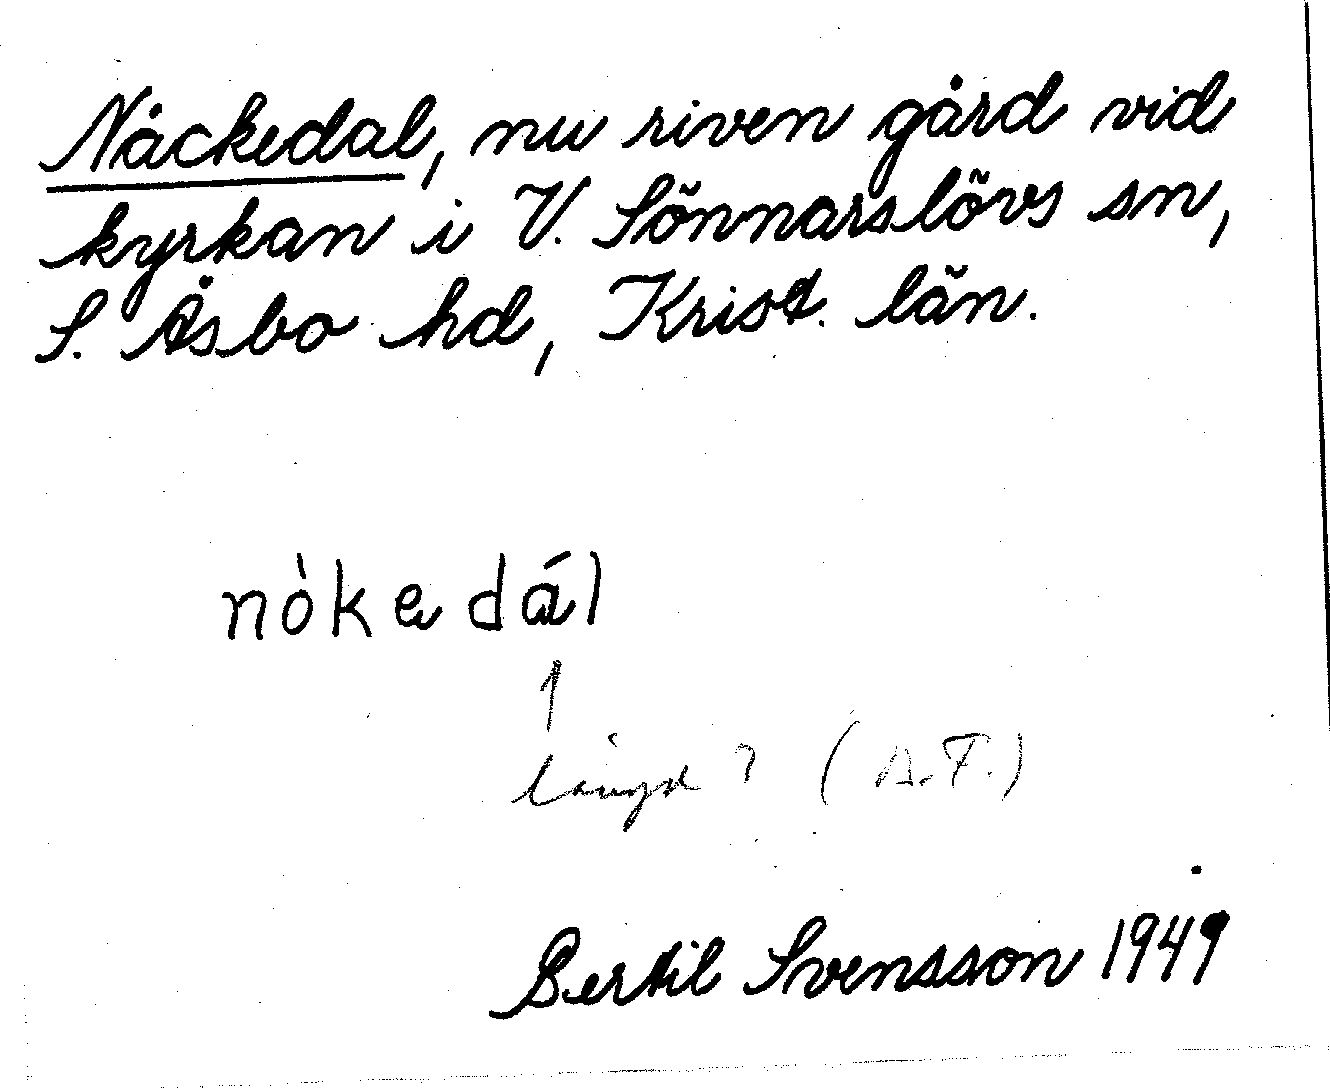 Nåckedal, nu riven gård vid
kyrkan i V. Sönnarslövs sn,
S. Åsbo hd, Krist. län.
nòkedál
↑
längd? (A.F.)
Bertil Svensson 1949